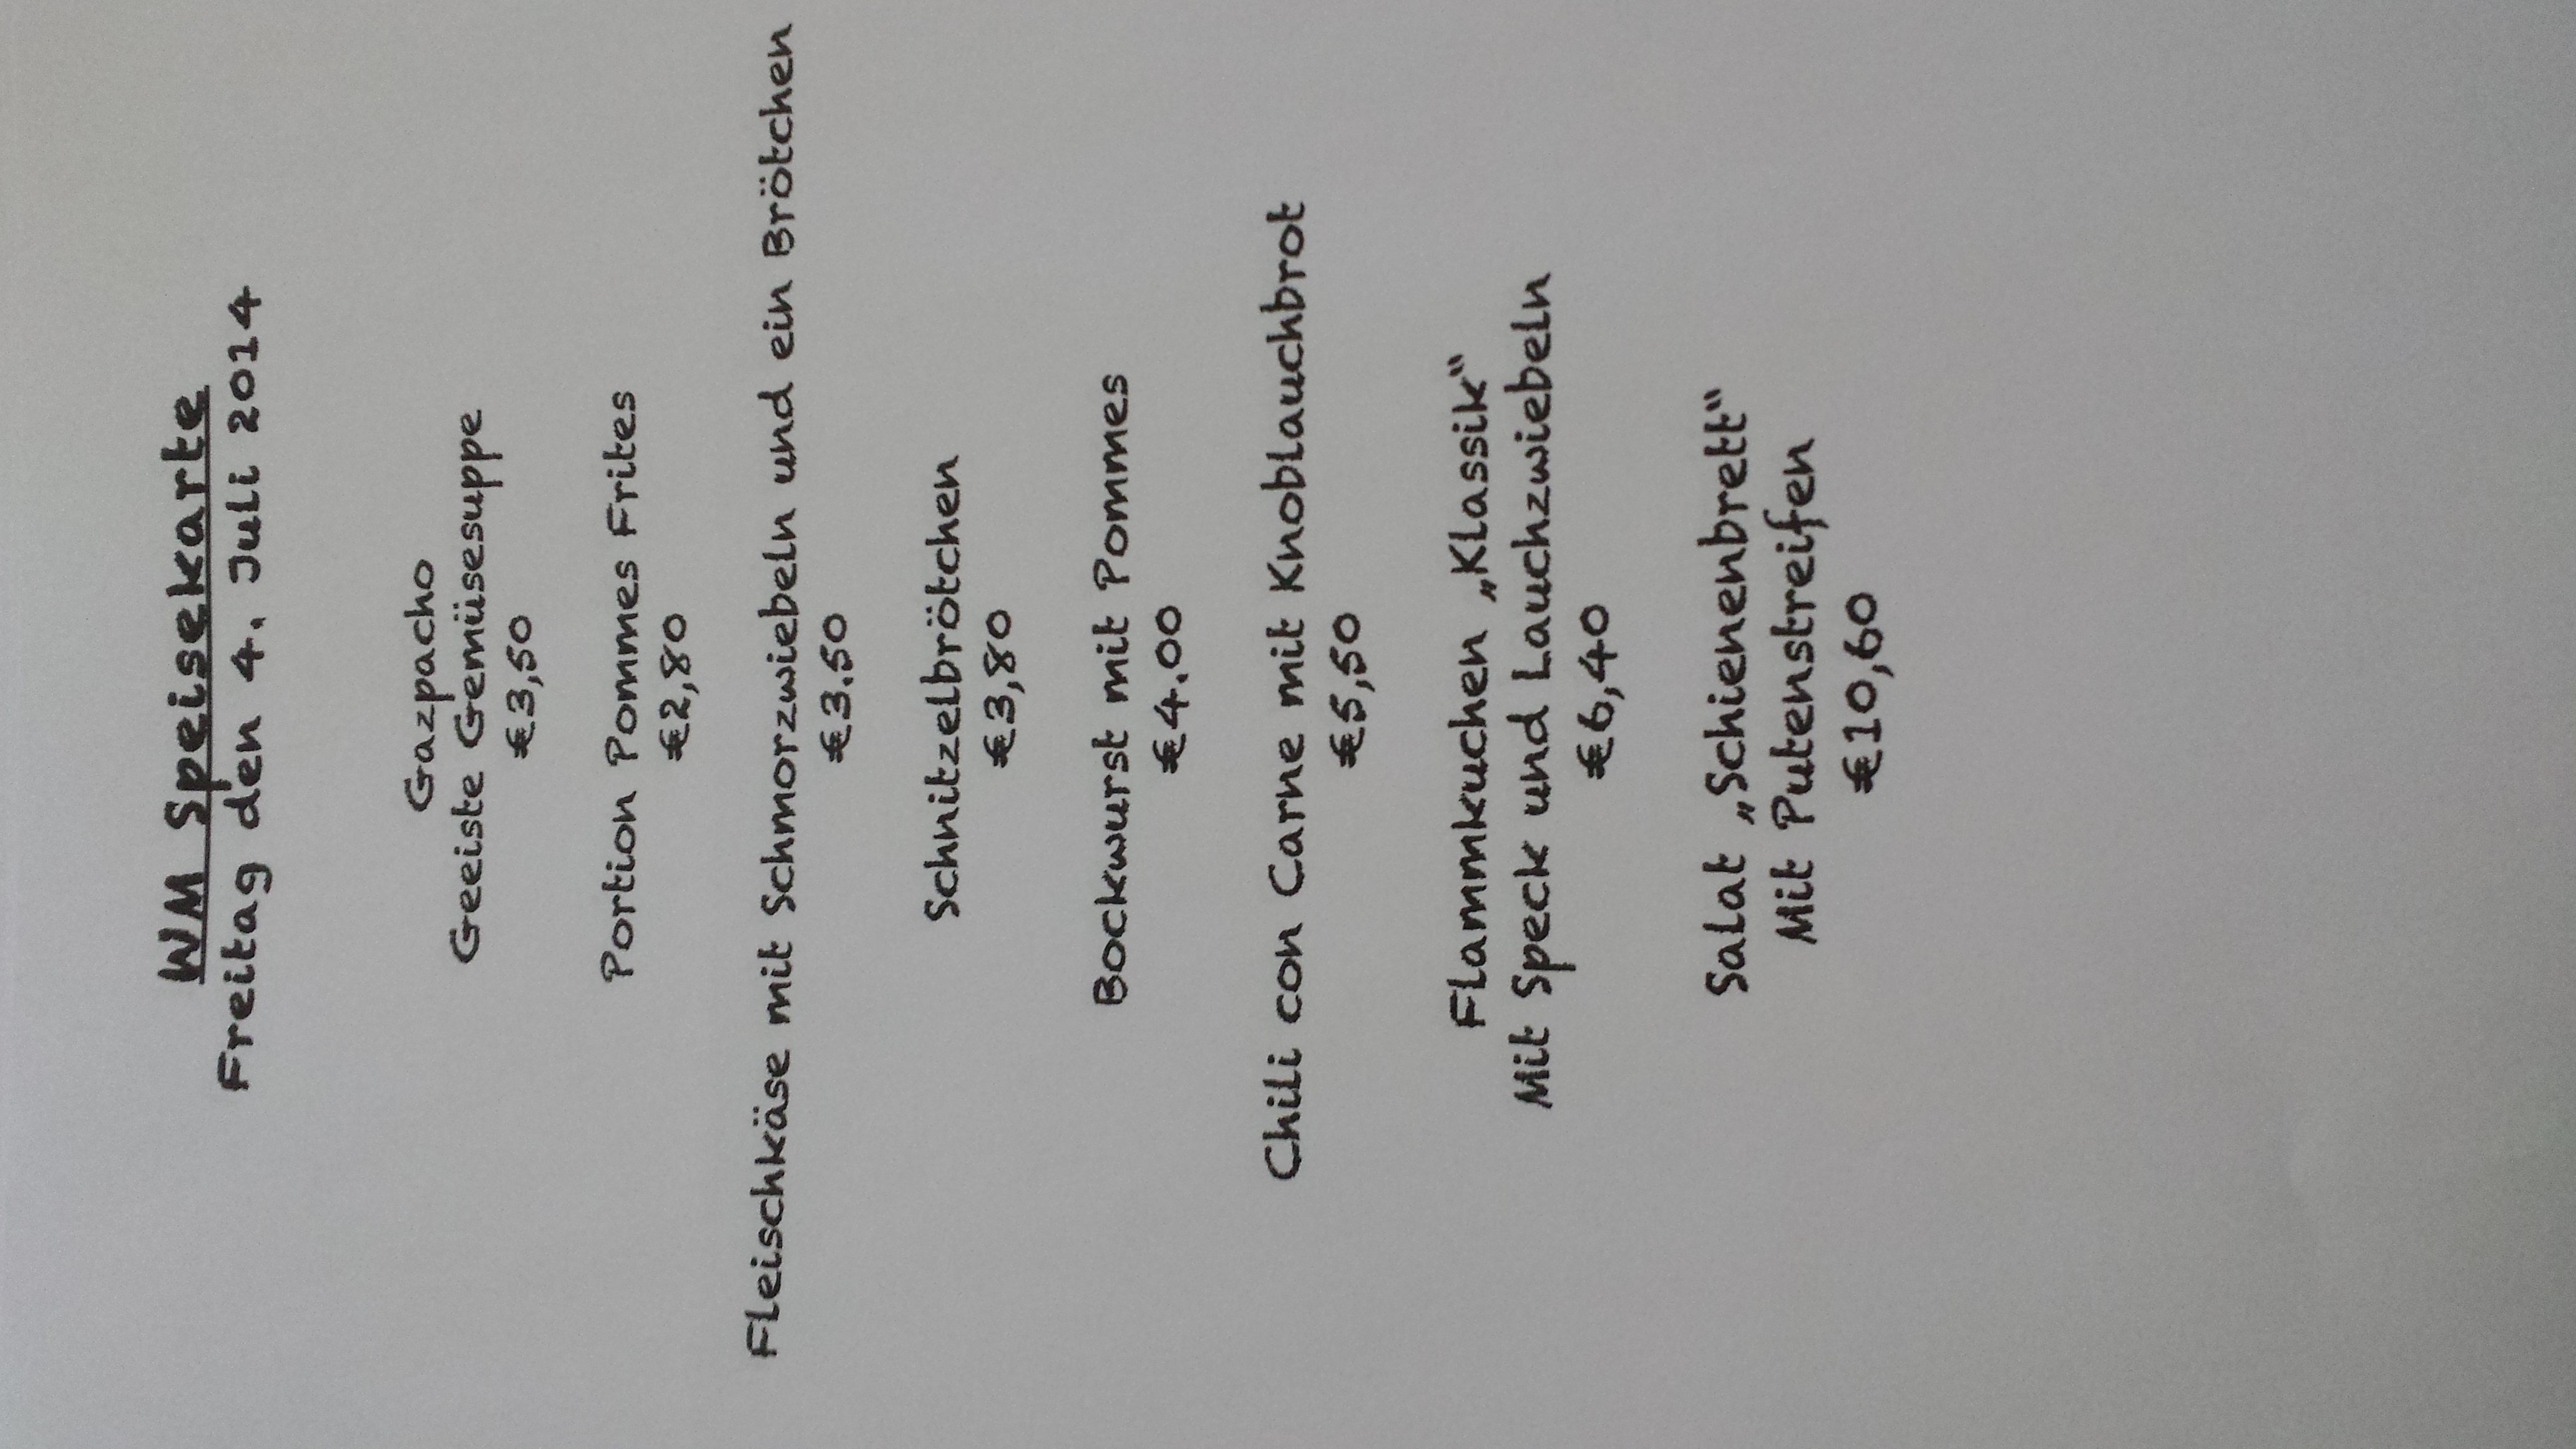 WM Speisekarte
Freitag den 4. Juli 2014
Gazpacho
Geeiste Gemüsesuppe
€3,50
Portion Pommes Frites
€2,80
Fleischkäse mit Schmorzwiebeln und ein Brötchen
€3.50
Schnitzelbrötchen
€3,80
Bockwurst mit Pommes
€4.00
Chili con Carne mit Knoblauchbrot
€5,50
Flammkuchen „Klassik“
Mit Speck und Lauchzwiebeln
€6,40
Salat „Schienenbrett“
Mit Putenstreifen
€10,60